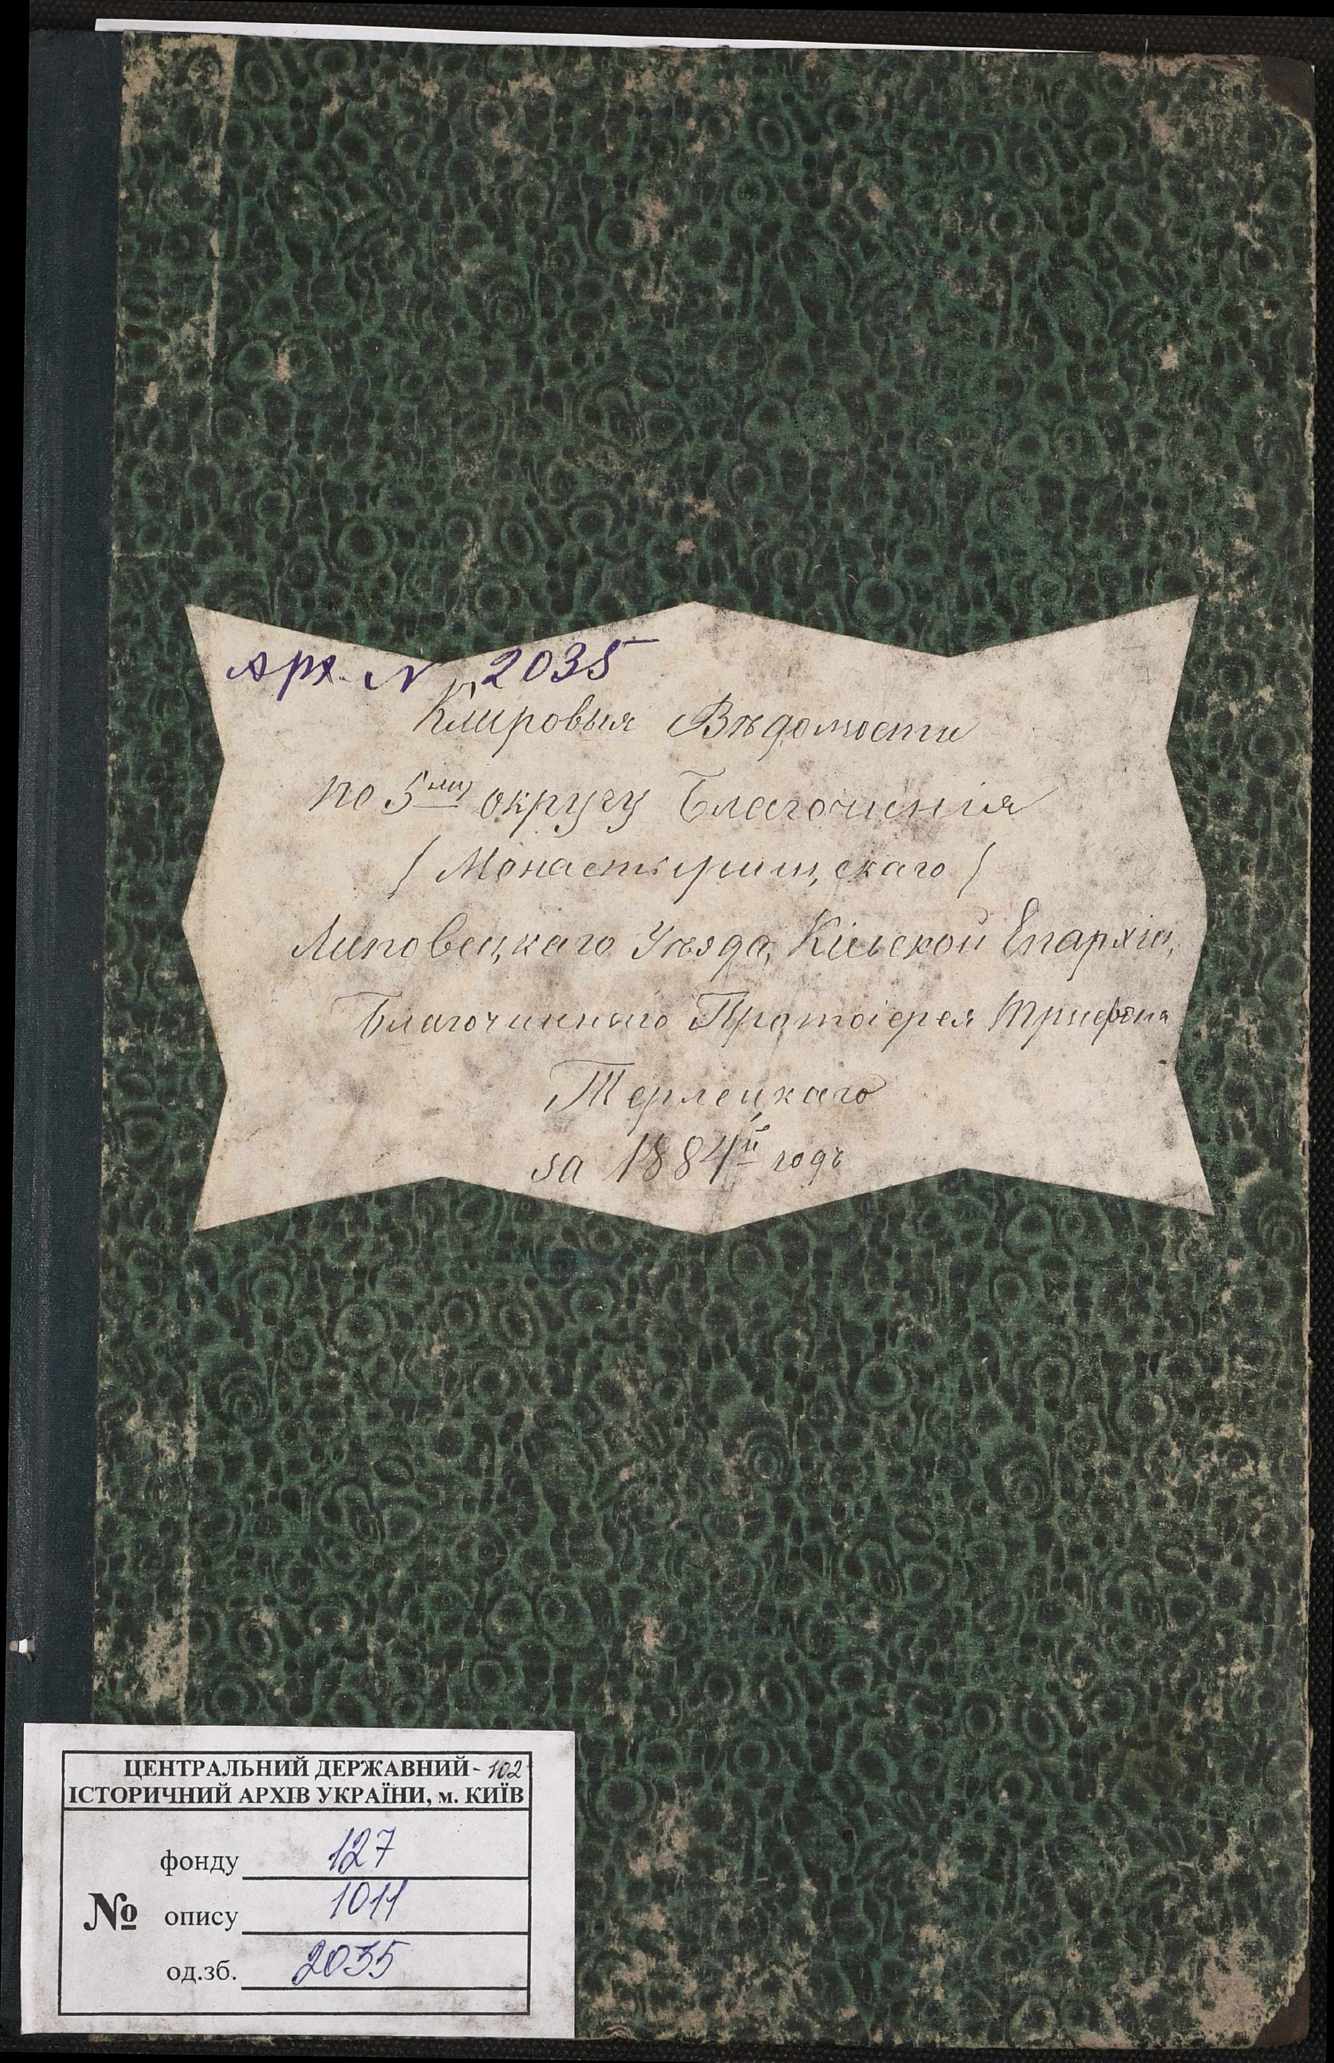 Арх. № 2035
Клировыя Вѣдомости
по 5му округу Благочинія
(Монастырищскаго)
Липовецкаго Уѣзда, Кіевской Епархіи,
Благочиннаго Протоіерея Трифона
Терлецкаго
за 1884й годъ
ЦЕНТРАЛЬНИЙ ДЕРЖАВНИЙ - 102
ІСТОРИЧНИЙ АРХІВ УКРАЇНИ, м. КИЇВ
фонду 127
№ опису 1011
од.зб. 2035